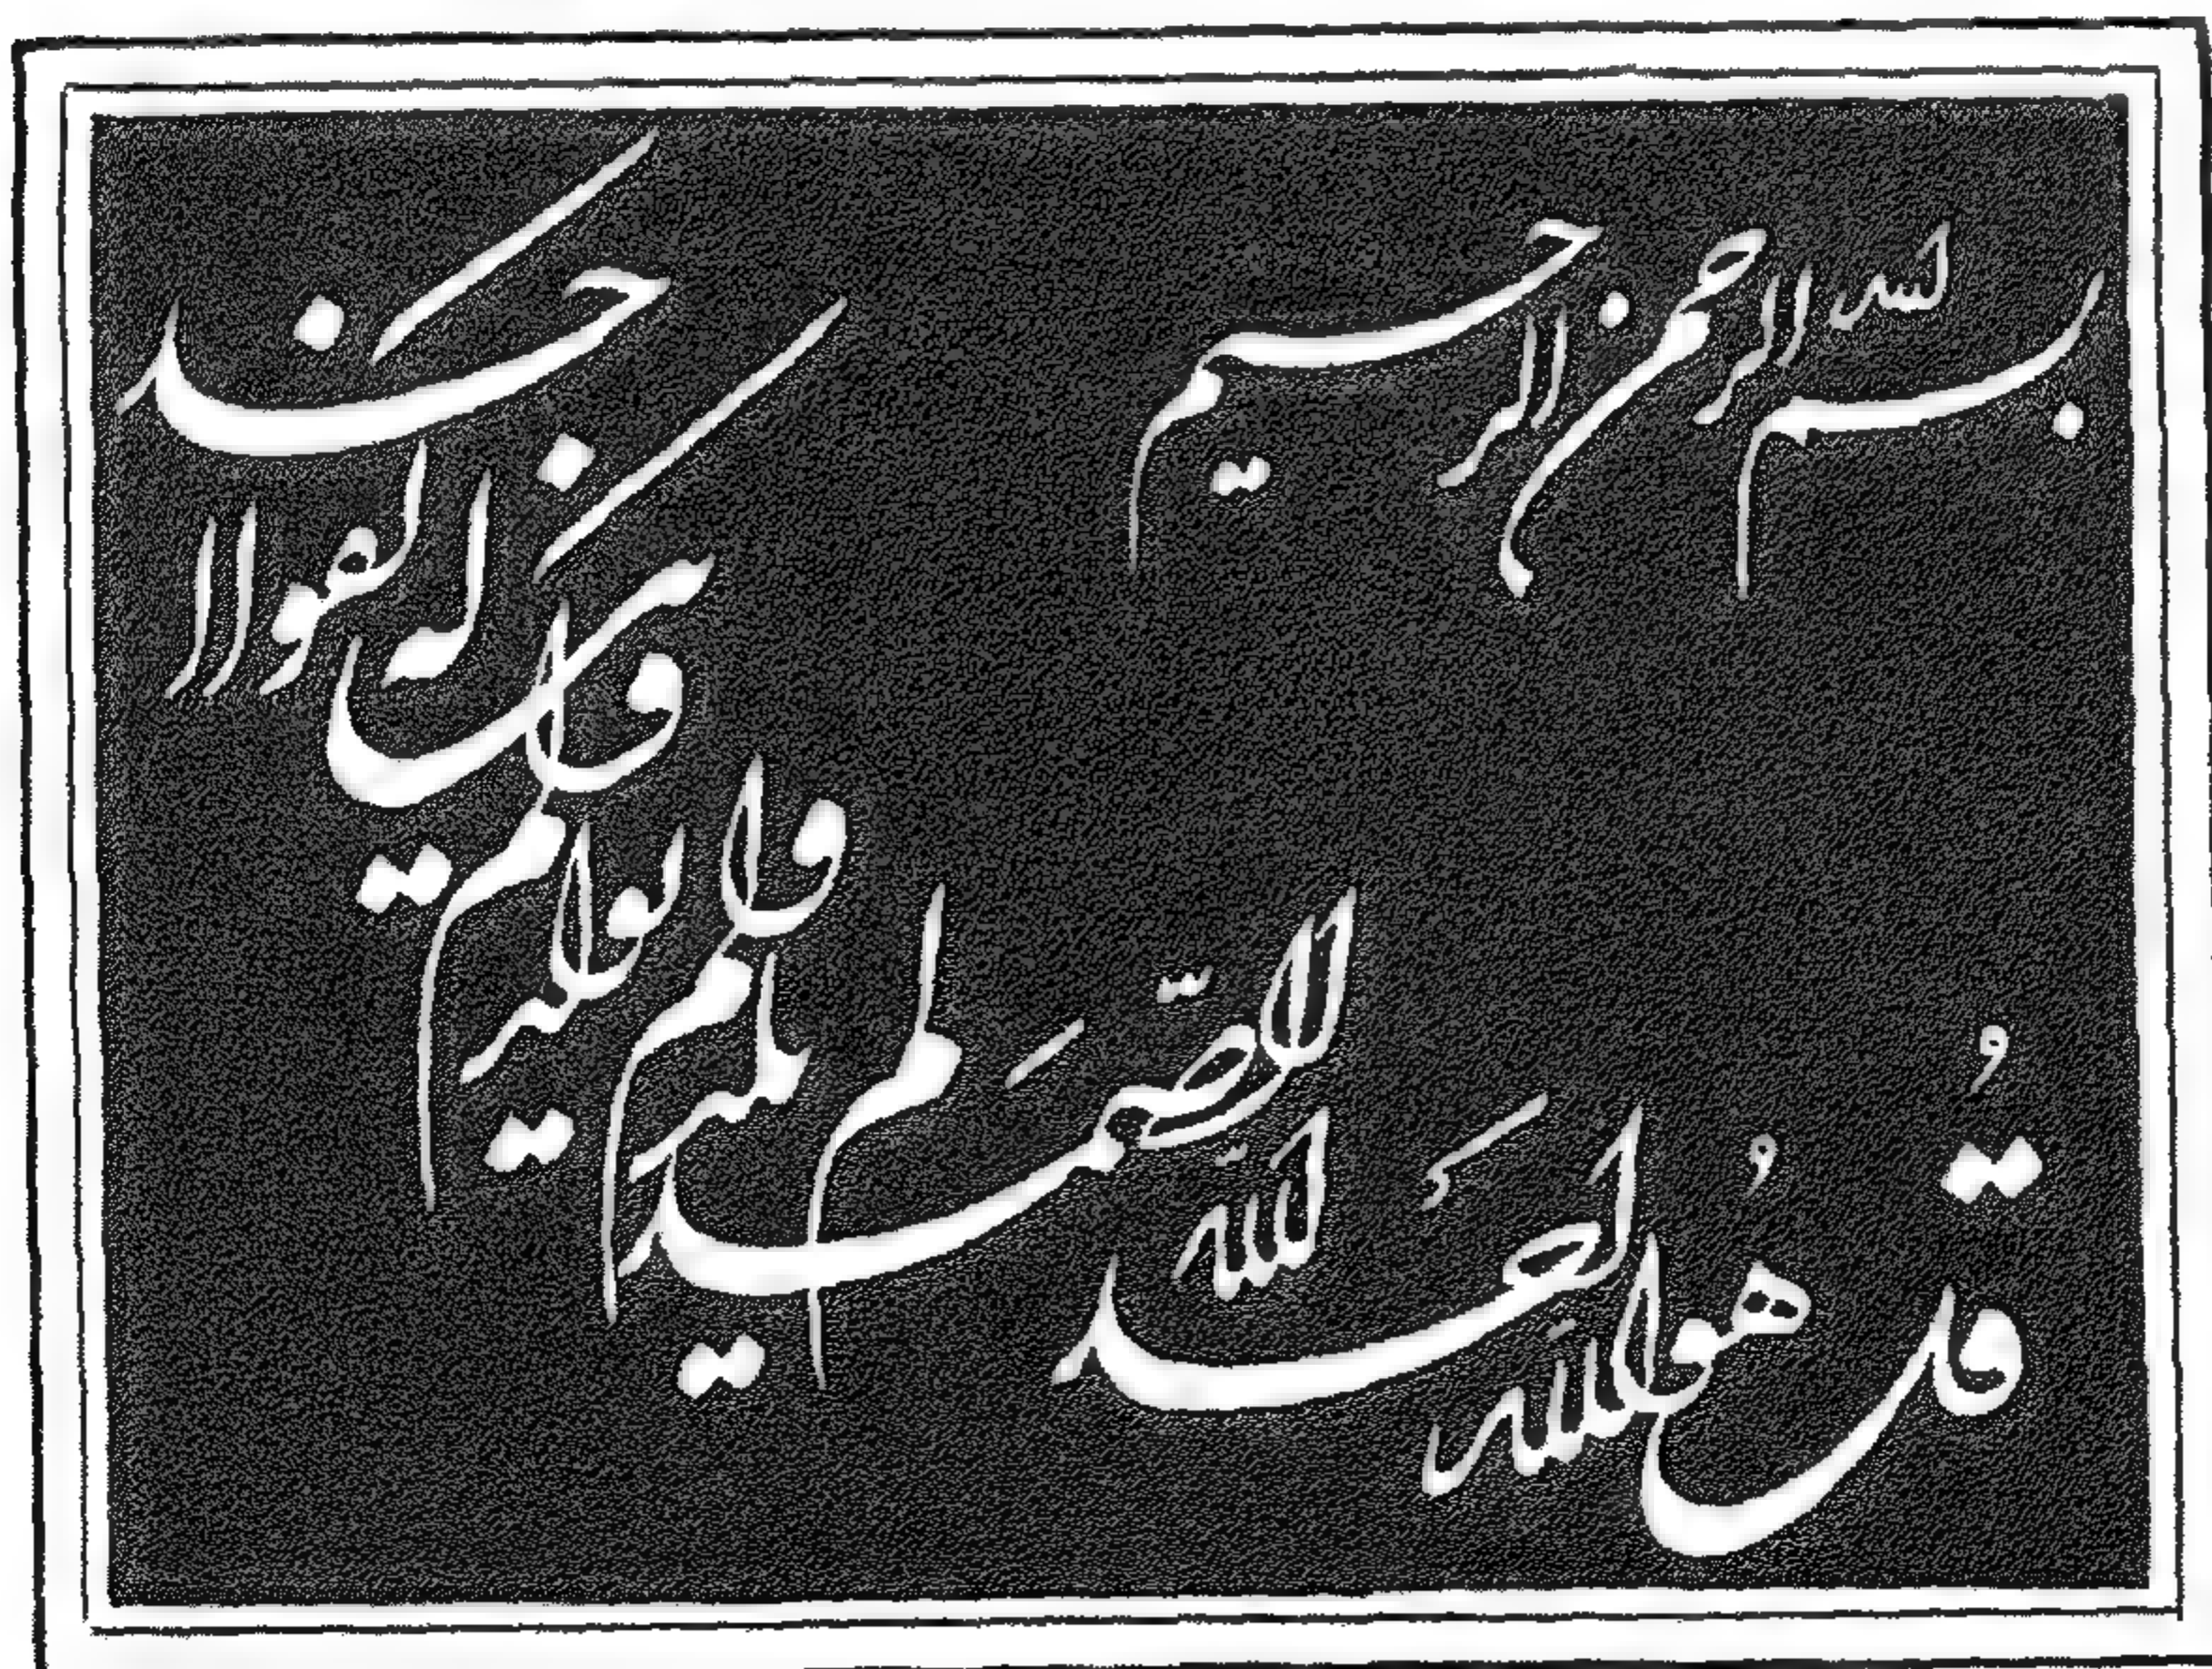 بسم الله الرحمن الرحيم
قُل هوُ الله احد الله الصَّمد لم يلد ولم يولد ولم يكن له كفوا احد